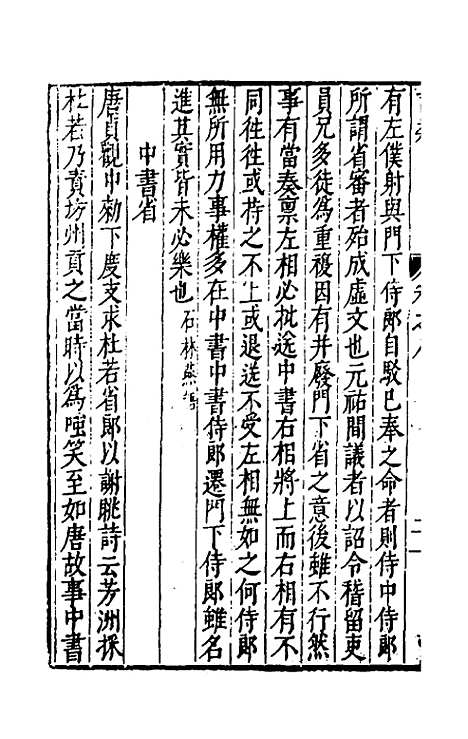 有左僕射與門下侍郎自駁已奉之命者則侍中侍郎
所謂省審者殆成虛文也元祐間議者以詔令稽留吏
員冗多徒為重複因有并廢門下省之意後雖不行然
事有當奏禀左相必批送中書右相將上而右相有不
同往往或持之不上或退送不受左相無如之何侍郎
無所用力事權多在中書中書侍郎遷門下侍郎雖名
進其實皆未必樂也石林燕語
中書省
唐貞觀中勑下度支求杜若省郎以謝朓詩云芳洲採
杜若乃責坊州貢之當時以為嗤笑至如唐故事中書